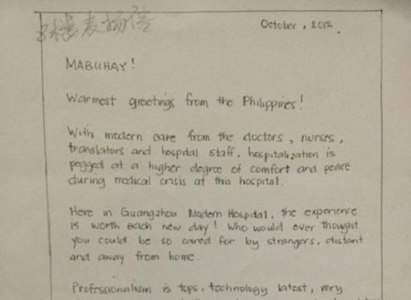 表扬信
October, 2012
MABUHAY!
Warmest greetings from the Philippines!
With modern care from the doctors, nurses,
translators and hospital staff, hospitalization is
pegged at a higher degree of comfort and peace
during medical crisis at this hospital.
Here in Guangzhou Modern Hospital, the experience
is worth each new day! Who would ever thought
you could be so cared for by strangers, distant
and away from home.
Professionalism is tops, technology latest, very